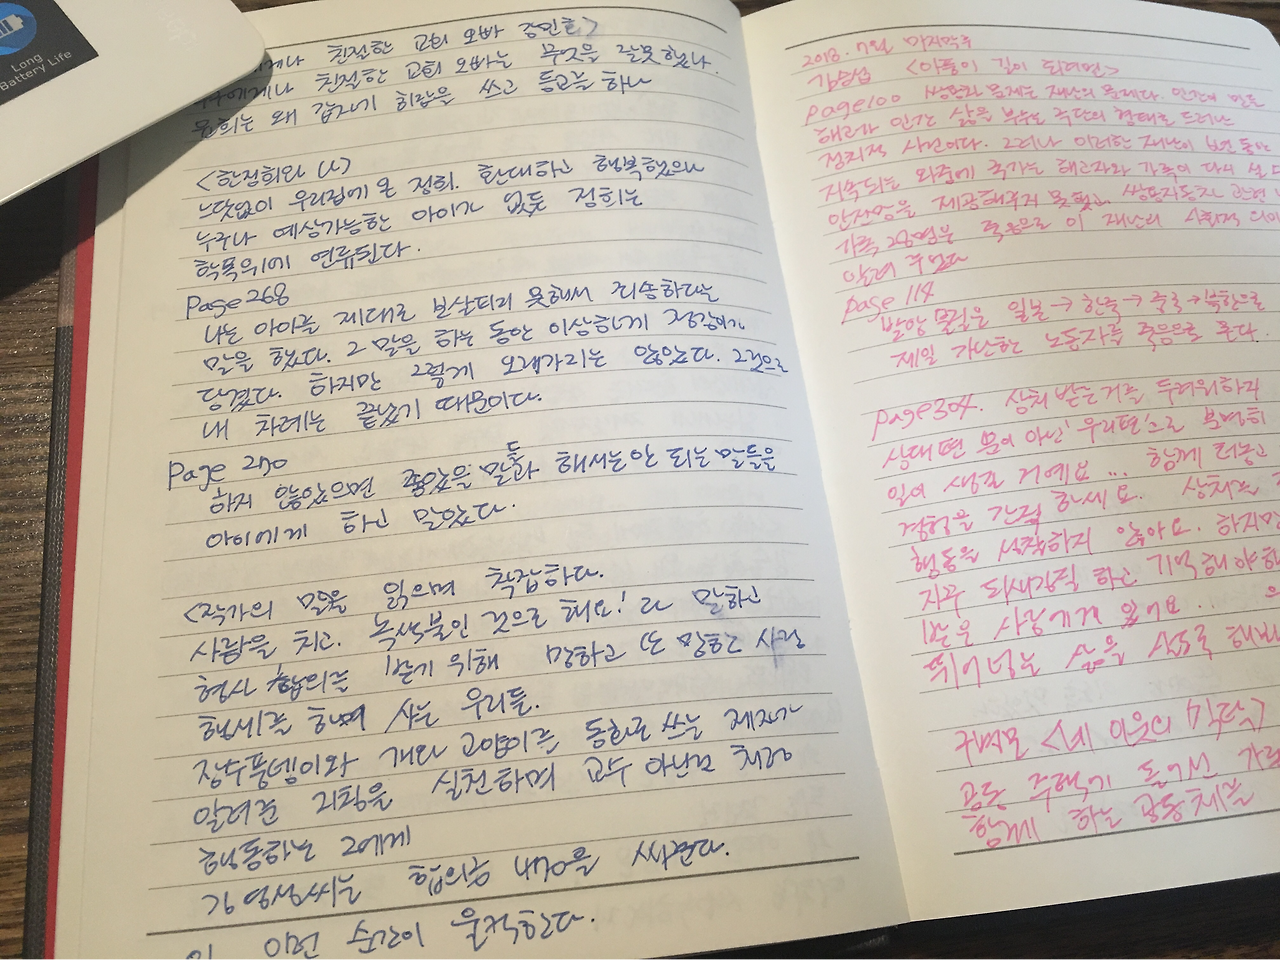 Long
Battery Life
친절한 교회 오빠 강민호>
누구에게나 친절한 교회 오빠는 무엇을 잘못했나.
윤희는 왜 갑자기 히잡을 쓰고 등교를 하나
<한정희와 나>
느닷없이 우리집에 온 정희. 환대하고 행복했으나
누구나 예상가능한 아이가 없듯 정희는
학폭위에 연류된다.
page 268
나는 아이를 제대로 보살피지 못해서 죄송하다는
말을 했다. 그 말을 하는 동안 이상하게 정강이가
당겼다. 하지만 그렇게 오래가지는 않았다. 그것으로
내 차례는 끝났기 때문이다.
page 270
하지 않았으면 좋았을 말들과 해서는 안 되는 말들을
아이에게 하고 말았다.
<작가의 말>을 읽으며 착잡하다.
사람을 치고. 녹색불인 것으로 해요! 라 말하고
형사 합의를 받기 위해 망하고 또 망한 사람
행세를 하며 사는 우리들.
장수풍뎅이와 개와 고양이를 동화로 쓰는 제자가
알려준 지침을 실천하며 교수 아닌것 처럼
행동하는 그에게
김영성씨는 합의금 내역을 싸준다.
이런 순간이 울컥한다.
2018. 7월 마지막주
김승섭 <아픔이 길이 되려면>
page 100 쌍용차 문제는 재난의 문제다. 인간이 만든
해고가 인간 삶을 부수는 극단의 형태로 드러난
정치적 사건이다. 그러나 이러한 재난이 9년 동안
지속되는 와중에 국가는 해고자와 가족이 다시 설
안전망을 제공해주지 못했고 쌍용자동차 관련
가족 29명은 죽음으로 이 재난의 사회적 의미
알려 주었다
page 114
발암 물질은 일본→한국→중국→북한으로
제일 가난한 노동자를 죽음으로 몬다.
page 304. 상처 받는 거를 두려워하지
상대편 분이 아닌 '우리편'으로 분명히
일이 생길 거예요... 함께 더놓고
경험을 간직 하세요. 상처는
행동을 시작하지 않아요. 하지만
자꾸 되새김질 하고 기억해야 한
받은 사람에게 있어요..
뛰어넘는 삶을 살도록 해
구병모 <네 이웃의 식탁>
공동 주택에 들어선
함께 하는 공동체를